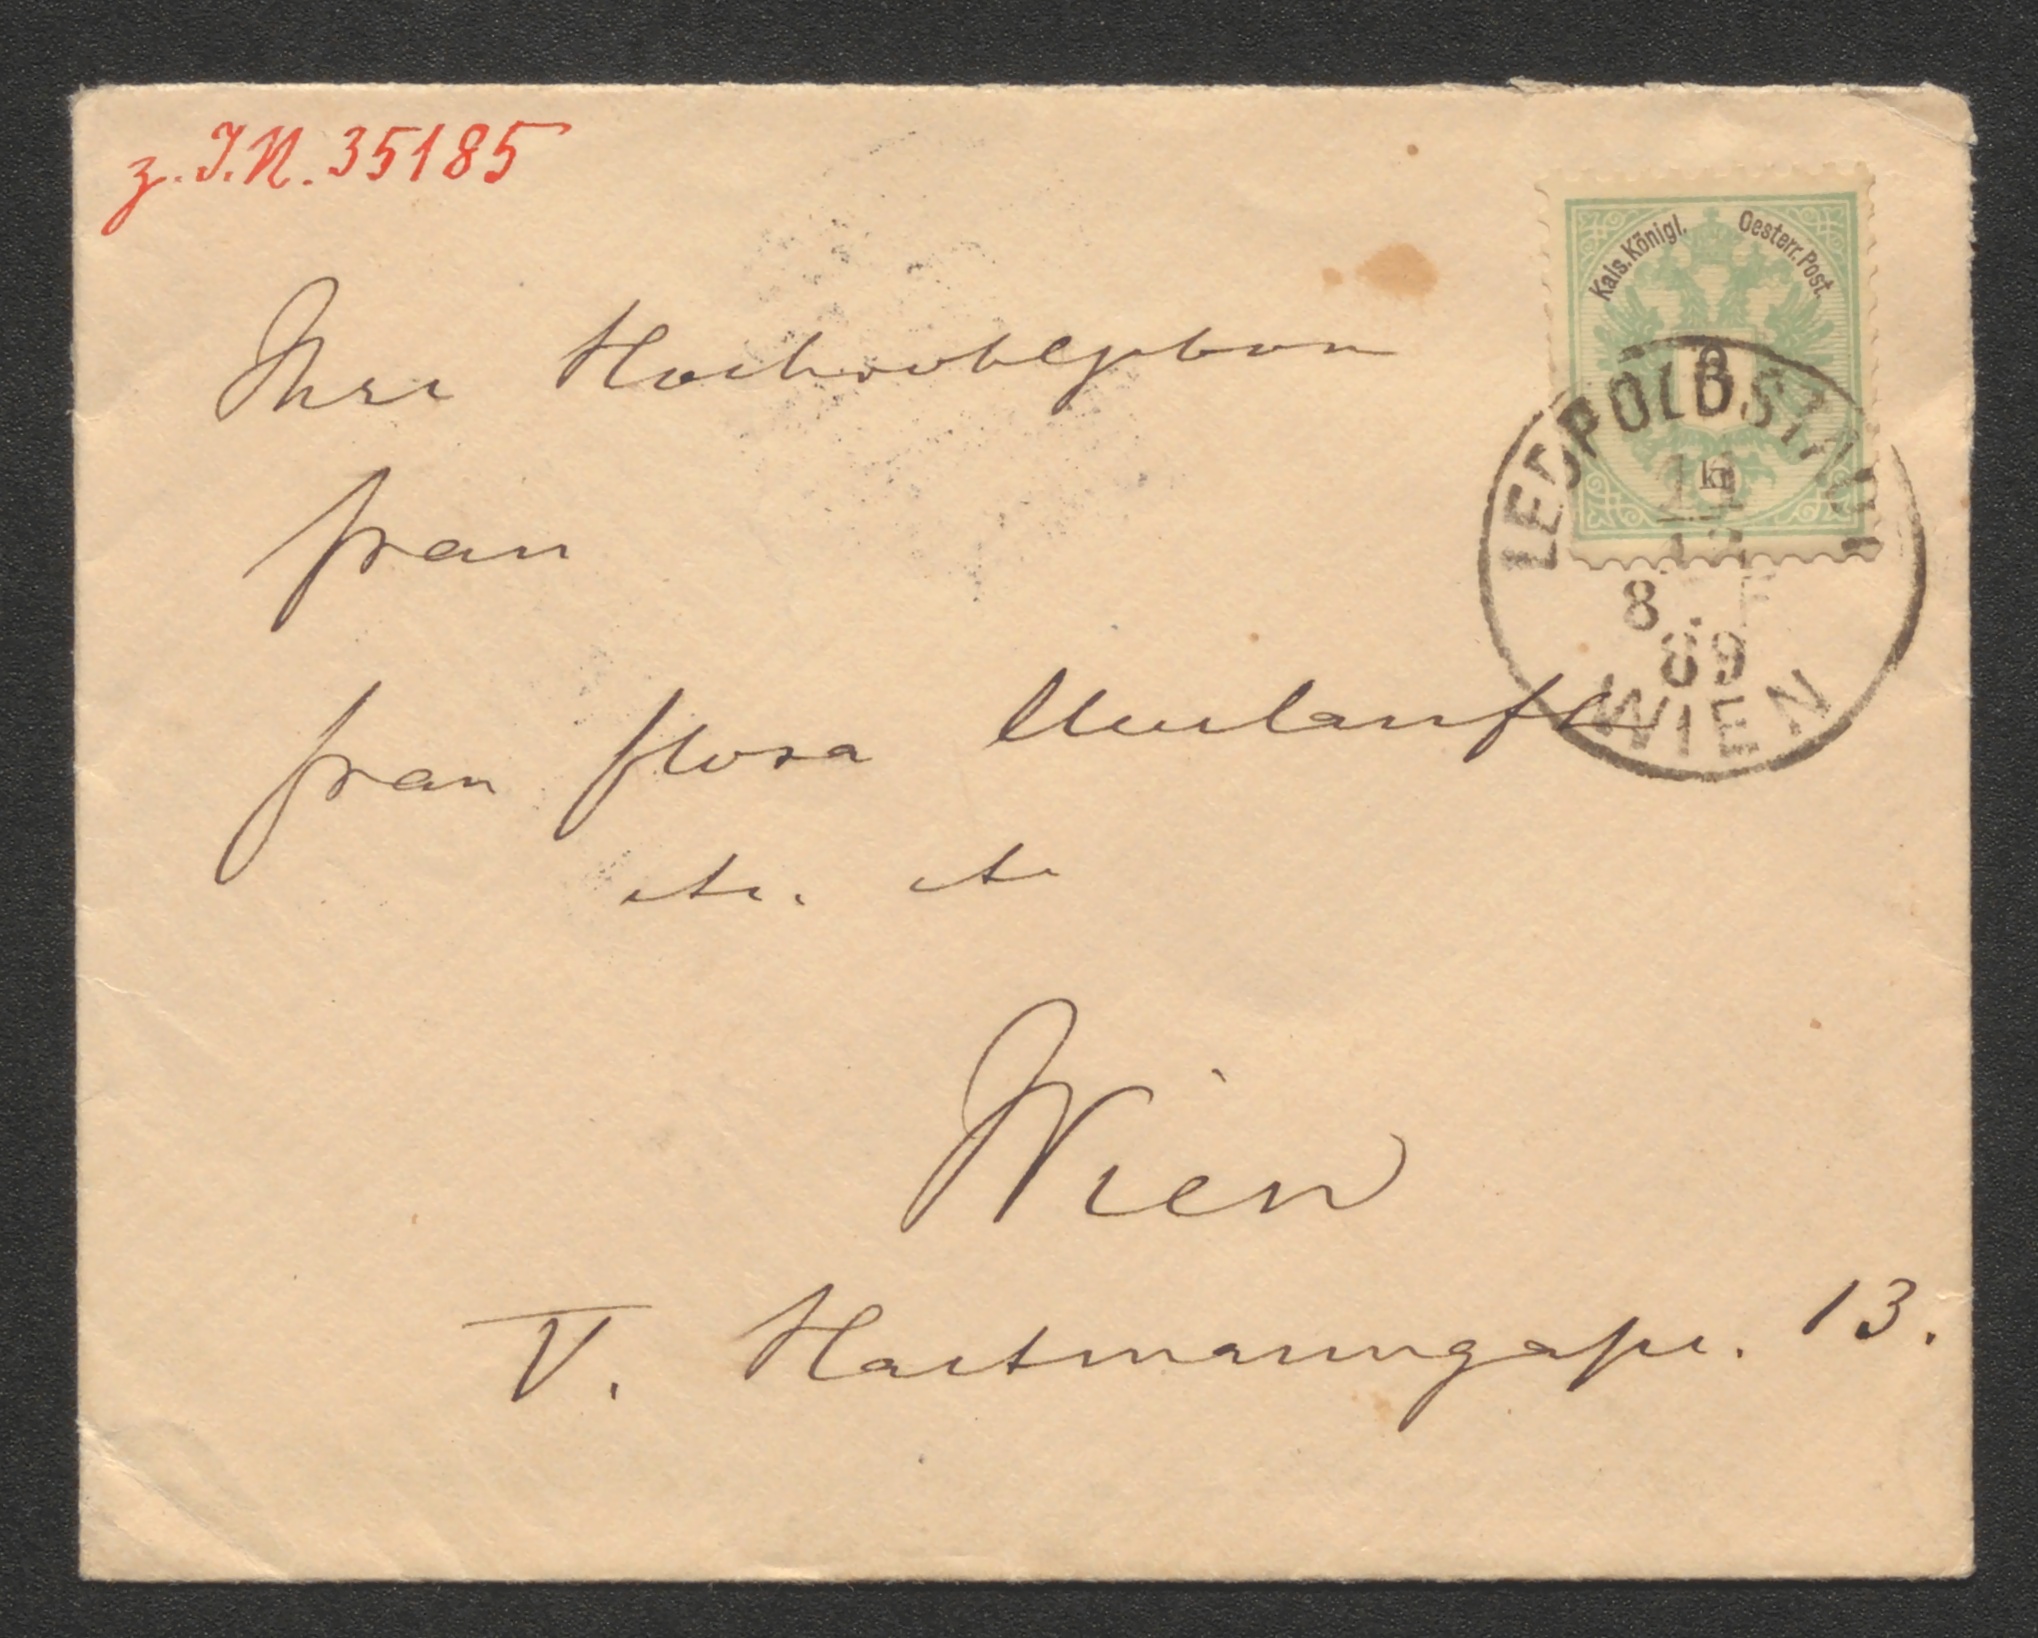 z. I.N. 35185
Kais. Königl. Oesterr. Post.
3
kr
LEOPOLDSTADT
8
89
WIEN
Ihrer Hochwohlgeboren
Frau
Frau Flora
etc. etc
Wien
V. Hartmanngasse. 13.